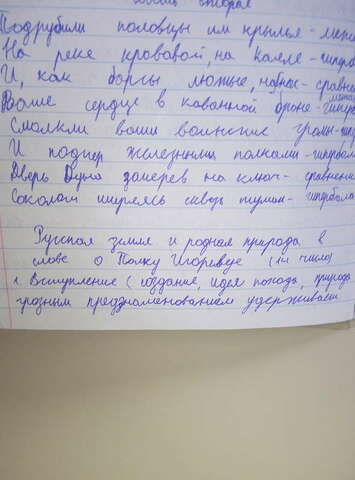 вторая
Подрубили половцы им крылья - мета
На реке кровавой, на Каяле - гипербо
И, как барсы лютые, набег - сравнение
Ваше сердце в кованной броне - гипер
Смолкли ваши воинские громы - гипер
И подпер железными полками - гипербол
Дверь Дуная заперев на ключ - сравнение
Соколом ширяясь сквозь туман - гипербола
Русская земля и родная природа в
слове о Полку Игореве (1й число)
1. Вступление ( создание, идея похода, природа
грозным предзнаменованием удерживает